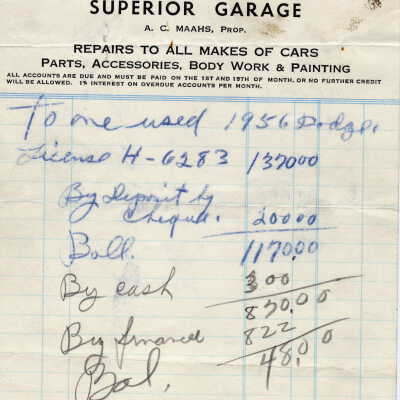 SUPERIOR GARAGE
A. C. MAAHS, PROP.
REPAIRS TO ALL MAKES OF CARS
PARTS, ACCESSORIES, BODY WORK & PAINTING
ALL ACCOUNTS ARE DUE AND MUST BE PAID ON THE 1ST AND 15TH OF MONTH, OR NO FURTHER CREDIT
WILL BE ALLOWED. 1% INTEREST ON OVERDUE ACCOUNTS PER MONTH.
To one used 1956 Dodge.
License H-6283 137000
By Deposit by
Cheque. 20000
Ball. 1170.00
By cash 300
870.00
By financed 822
Bal. 48.00